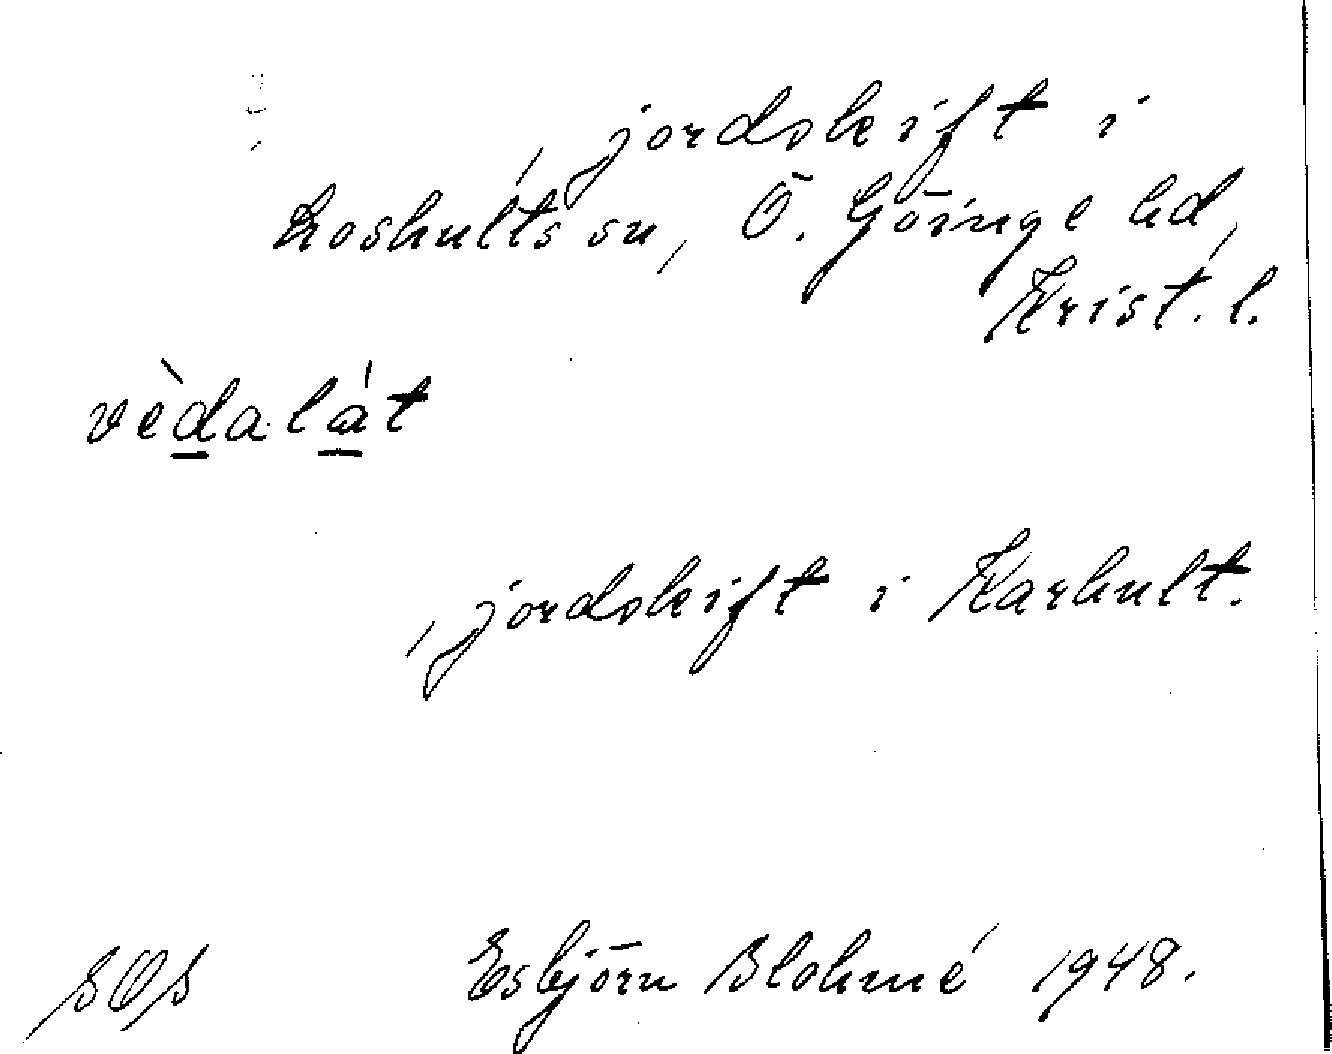 , jordskift i
Loshults sn, Ö. Göinge hd,
Krist. l.
vèdalát
, jordskift i Karhult.
SOS Esbjörn Blohmé 1948.